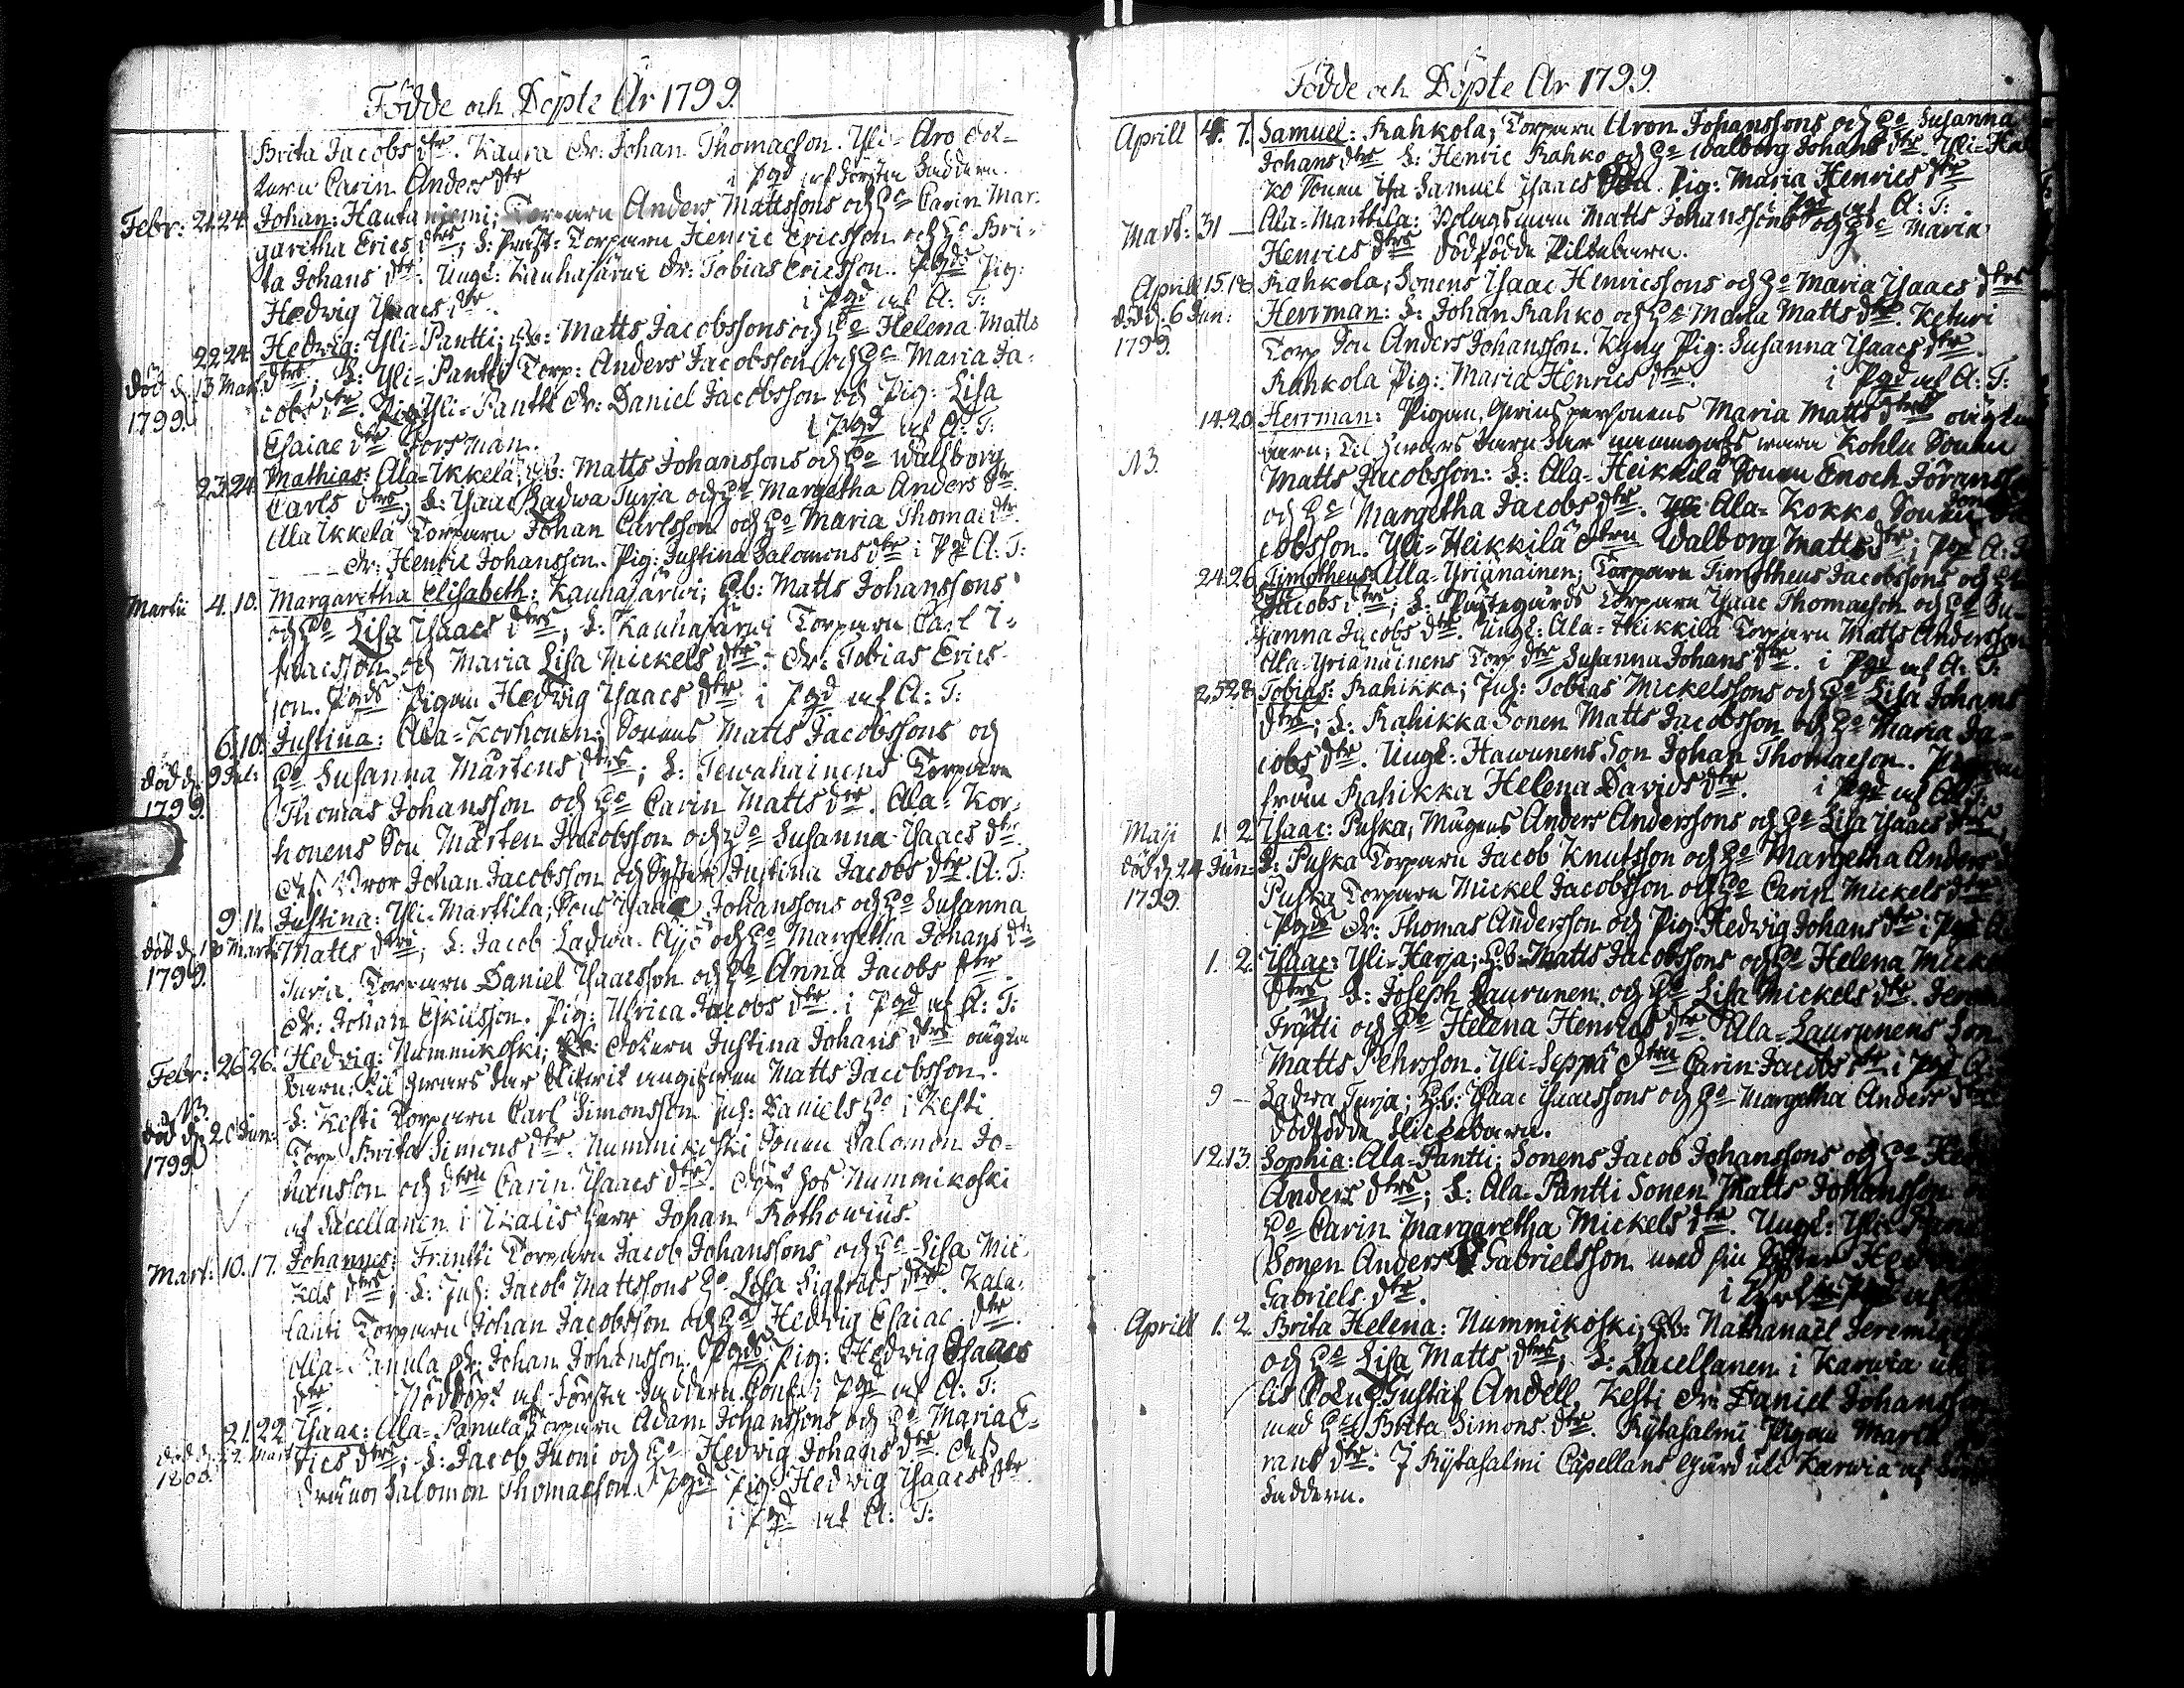 Födde och Döpte År 1799.
Brita Jacobs dtr. Kaura dr: Johan Thomasson. Yli-Aro dot-
tern Carin Anders dtr i Pgd af förstn faddern.
Febr: 21. 24. Johan: Hautaniemi; Torparn Anders Mattssons och H:o Carin Mar-
garetha Erics dtrs; L: Präst: Torparn Henric Ericsson och H:o Bri-
ta Johans dtr. Ungl: Kauhajärvi dr: Tobias Ericsson. Pgds Pig:
Hedvig Isaacs dtr. i Pgd af A: T:
22. 24. Hedvig: Yli-Pantti; Eb: Matts Jacobssons och H:o Helena Matts
död d. 13 Mart. dtrs; L: Yli-Pantti Torp: Anders Jacobsson och H:o Maria Ja-
1799. cobs dtr. Yli-Pantti dr: Daniel Jacobsson och Pig: Lisa
Esaiae dtr Forsman. i Pgd af A: T:
23. 24. Mathias: Ala-Ikkelä; Eb: Matts Johanssons och H:o Walborg
Carls dtrs; L: Isaac Ladwa Turja och H:o Margetha Anders dtr.
Ala Ikkelä Torparn Johan Carlsson och H:o Maria Thomae dtr.
dr: Henric Johansson. Pig: Justina Salomons dtr i Pgd A: T:
Martii 4. 10. Margaretha Elisabeth: Kauhajärvi; Eb: Matts Johanssons
och H:o Lisa Isaacs dtrs; L: Kauhajärvi Torparn Carl I-
saacsson och Maria Lisa Mickels dtr. dr: Tobias Erics-
son. Pgds Pigan Hedvig Isaacs dtr i Pgd af A: T:
6. 10. Justina: Ala-Korhonen; Sonens Matts Jacobssons och
död d. 9 Jul: H:o Susanna Mårtens dtrs; L: Tewahainens Torparn
1799. Thomas Johansson och H:o Carin Matts dtr. Ala-Kor-
honens Son Mårten Jacobsson och H:o Susanna Isaacs dtr.
Dess Bror Johan Jacobsson och Syster Justina Jacobs dtr. A: T:
9. 11. Justina: Yli-Marttila; Sons Isaac Johanssons och H:o Susanna
död d. 18 Mart: Matts dtrs; L: Jacob Ladwa-Äijö och H:o Margetha Johans dtr
1799. Turja. Torparn Daniel Isaacsson och H:o Anna Jacobs dtr
dr: Johan Eskilsson. Pig: Ulrica Jacobs dtr i Pgd af A: T:
Febr: 26. 26. Hedvig: Nummikoski; dottern Justina Johans dtrs oägta
NB. barn; til hwars far blifwit angifwen Matts Jacobsson.
död d. 20 Jun: L: Kesti Torparn Carl Simonsson Inh: Daniels H:o i Kesti
1799 Torp Brita Simons dtr. Nummikoski Sonen Salomon Jo-
hansson och dtrn Carin Isaacs dtr. döpt hos Nummikoski
af Sacellanen i Ikalis Herr Johan Rothowius.
Mart: 10. 17. Johannes: Frintti Torparn Jacob Johanssons och H:o Lisa Mic-
kels dtrs; L: Inh: Jacob Mattssons H:o Lisa Sigfreds dtr. Kala-
lanti Torparn Johan Jacobsson och H:o Hedvig Esaiae dtr.
Ala-Panula dr: Johan Johansson. Pgds Pig: Hedvig Isaacs
dtr. Nöddöpt af förstn faddern Conf: i Pgd af A: T:
21. 22. Isaac: Ala-Panula Torparn Adam Johanssons och H:o Maria E-
död d. 22 Mart rics dtrs; L: Jacob Luoni och H:o Hedvig Johans dtr. Dess
1800. dräng Salomon Thomasson. Pgd Pig: Hedvig Isaacs dtr
i Pgd af A: T:
Födde och Döpte År 1799.
Aprill 4. 7. Samuel: Rahkola; Torparn Aron Johanssons och H:o Susanna
Johans dtrs L: Henric Rahko och H:o Walborg Johans dtr. Yli-
ko Sonen Samuel Isaacs Son. Pig: Maria Henrics dtr
i Pgd af A: T:
Mart: 31 — Ala-Marttila: Bolagsman Matts Johanssons och H:o Maria
Henrics dtrs dödfödde Piltebarn.
Aprill 15. 18. Rahkola; Sonens Isaac Henricssons och H:o Maria Isaacs dtrs
död d. 6 Jun: Herrman: L: Johan Rahko och H:o Maria Matts dtr. Keturi
1799. Torp Son Anders Johansson. Kyny Pig: Susanna Isaacs dtr.
Rahkola Pig: Maria Henrics dtr. i Pgd af A: T:
14. 20. Herrman: Pigan, Maria Matts dtrs oägta
NB. barn; Til hwars barn far namngafs warn Kohlu Sonen
Matts Jacobsson: L: Ala-Heikkilä Sonen Enoch Göransson
och H:o Margetha Jacobs dtr. Ala-Kokko Sonen
cobsson. Yli-Heikkilä dtrn Walborg Matts dtr; Pgd A: T:
24. 26. Timotheus: Ala-Yrjänäinen; Torparn Timotheus Jacobssons och H:o
Jacobs dtrs; L: Prästegårds Torparn Isaac Thomasson och H:o Su-
sanna Jacobs dtr. Ungl: Ala-Heikkilä Torparn Matts Andersson
Ala-Yrjänäinens Torp dtr Susanna Johans dtr. i Pgd af A: T:
25. 28. Tobias: Rahikka; Inh: Tobias Mickelssons och H:o Lisa Johans
dtrs; L: Rahikka Sonen Matts Jacobsson och H:o Maria Ja-
cobs dtr. Ungl: Hawunens Son Johan Thomasson.
från Rahikka Helena Davids dtr. i Pgd af A: T:
Maji 1. 2. Isaac: Puska; Mågens Anders Anderssons och H:o Lisa Isaacs dtrs;
död d. 24 Jun: L: Puska Torparn Jacob Knutsson och H:o Margetha Anders
1799. Puska Torparn Mickel Jacobsson och H:o Carin Mickels dtr
Pgds dr: Thomas Andersson och Pig: Hedvig Johans dtr i Pgd
1. 2. Isaac: Yli-Harja; Eb: Matts Jacobssons och H:o Helena Mickels
dtrs; L: Joseph Laurunen och H:o Lisa Mickels dtr.
Frätti och H:o Helena Henrics dtr. Ala-Laurunens Son
Matts Pehrsson. Yli-Seppä dtrn Carin Jacobs dtr i Pgd A:
9 — Ladwa Turja; Eb: Isaac Isaacssons och H:o Margetha Anders dtrs
dödfödde flickebarn.
12. 13. Sophia: Ala-Pantti; Sonens Jacob Johanssons och H:o
Anders dtrs; L: Ala-Pantti Sonen Matts Johansson
H:o Carin Margaretha Mickels dtr. Ungl: Yli-
Sonen Anders Gabrielsson med sin Syster
Gabriels dtr. i
Aprill 1. 2. Brita Helena: Nummikoski; Eb: Nathanaël
och H:o Lisa Matts dtrs; L: Sacellanen i Karwia
Gustaf Andell, Kesti dr: Daniel Johansson
med H:o Brita Simons dtr. Kytäsalmi Pigan Maria
rans dtr: I Kytäsalmi Capellans Gård uti Karwia af
faddern.